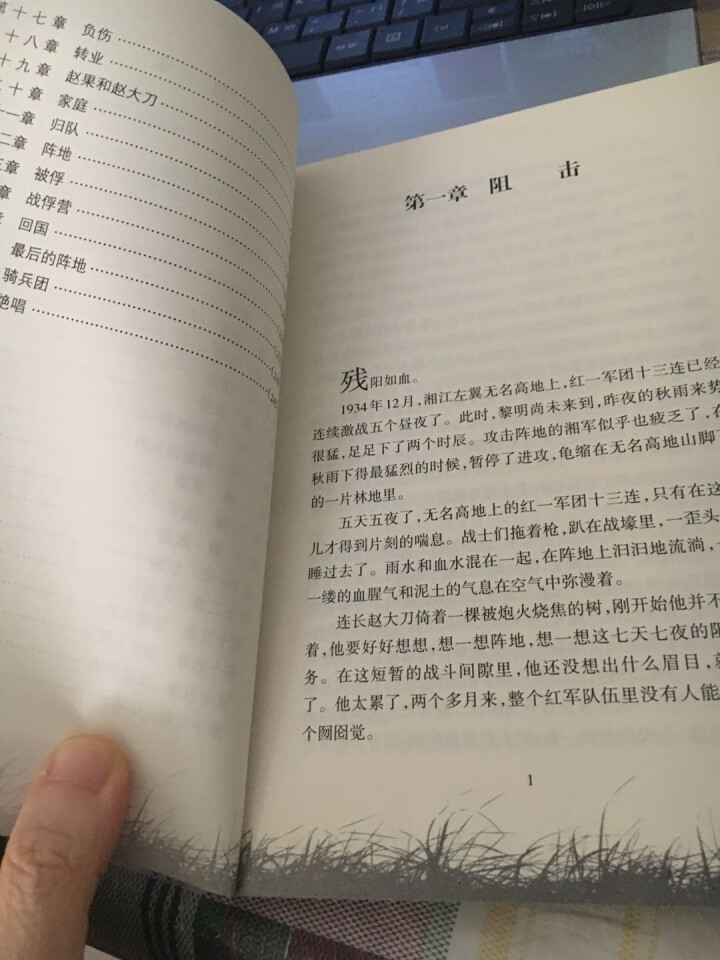 第十七章 负伤
十八章 转业
十九章 赵果和赵大刀
二十章 家庭
十一章 归队
二章 阵地
三章 被俘
章 战俘营
章 回国
最后的阵地
骑兵团
绝唱
第一章 阻 击
残阳如血。
1934年12月,湘江左翼无名高地上,红一军团十三连已经
连续激战五个昼夜了。此时,黎明尚未来到,昨夜的秋雨来势
很猛,足足下了两个时辰。攻击阵地的湘军似乎也疲乏了,在
秋雨下得最猛烈的时候,暂停了进攻,龟缩在无名高地山脚下
的一片林地里。
五天五夜了,无名高地上的红一军团十三连,只有在这
儿才得到片刻的喘息。战士们拖着枪,趴在战壕里,一歪头
睡过去了。雨水和血水混在一起,在阵地上汩汩地流淌,一
一缕的血腥气和泥土的气息在空气中弥漫着。
连长赵大刀倚着一棵被炮火烧焦的树,刚开始他并不
着,他要好好想想,想一想阵地,想一想这七天七夜的阻
务。在这短暂的战斗间隙里,他还没想出什么眉目,就
了。他太累了,两个多月来,整个红军队伍里没有人能
个囫囵觉。
1